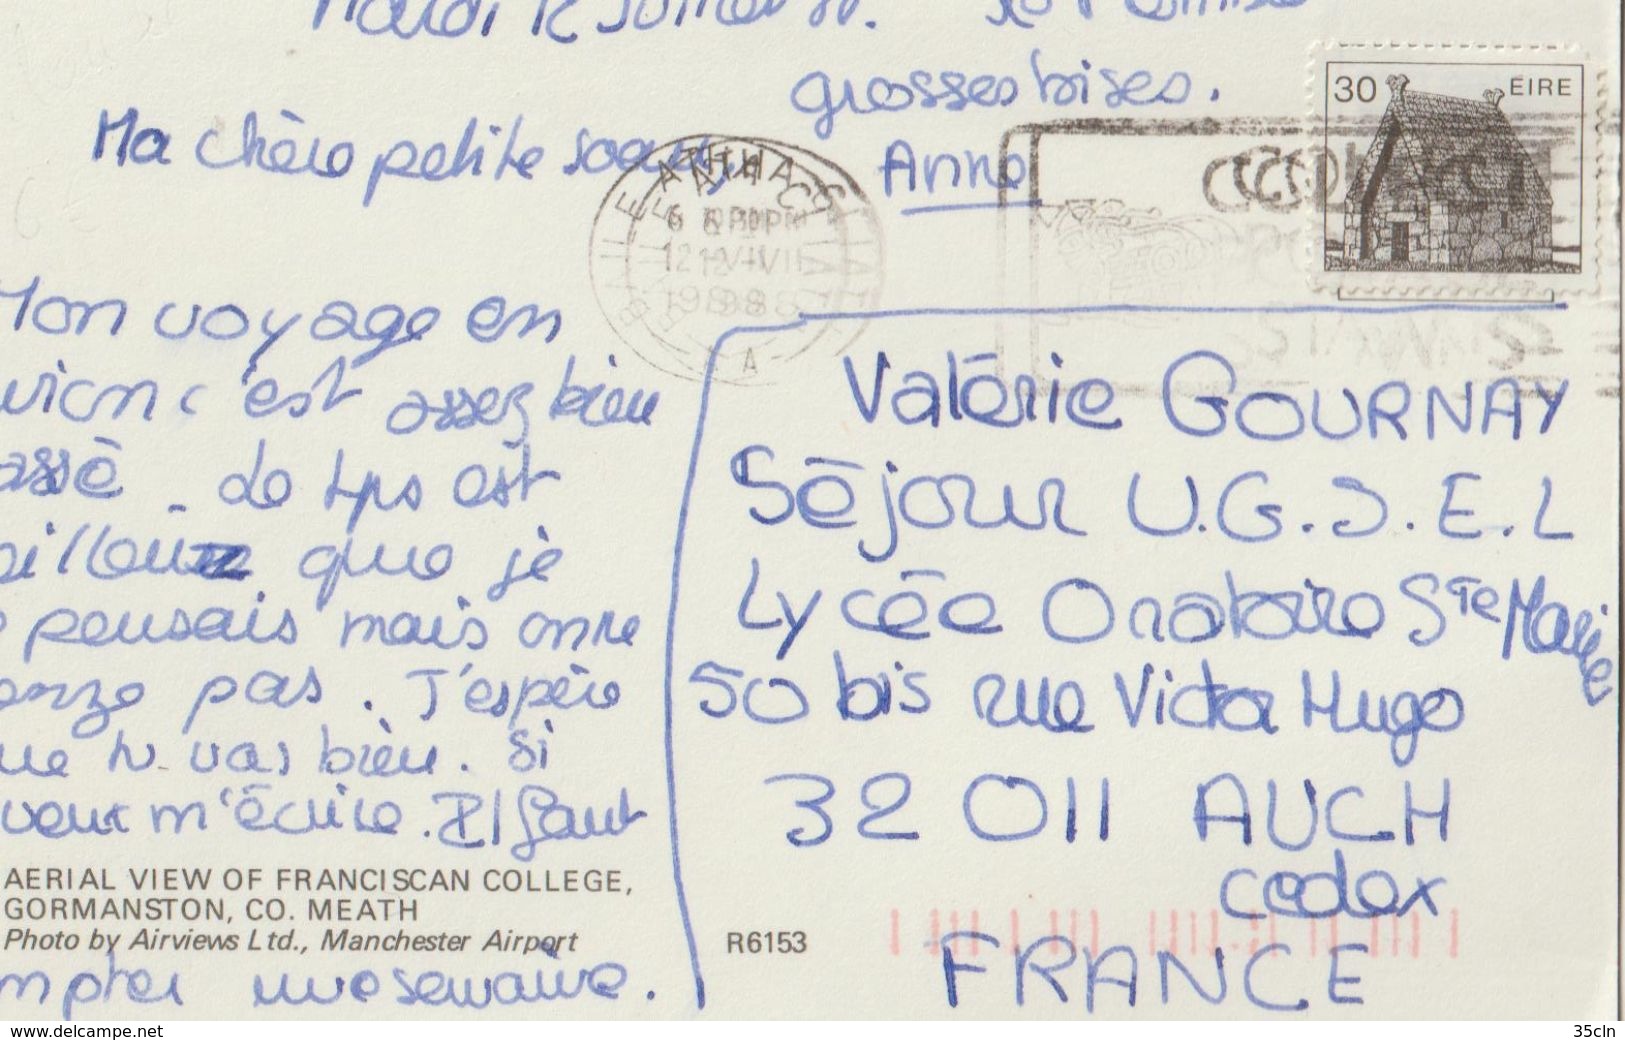 Mardi 12 Juillet 88.
grosses bises.
Anne
Ma chère petite soeur,
30 EIRE
12 VII
1988
A
Mon voyage en
avion c'est assez bien
passé. Le tps est
meilleur que je
pensais mais on ne
bronze pas. J'espère
que tu vas bien. Si
veux m'écrire. Il faut
compter une semaine.
AERIAL VIEW OF FRANCISCAN COLLEGE,
GORMANSTON, CO. MEATH
Photo by Airviews Ltd., Manchester Airport
R6153
Valérie GOURNAY
Séjour U.G.S.E.L
Lycée Oratoire Ste Marie
50 bis rue Victor Hugo
32 011 AUCH
cedex
FRANCE
www.delcampe.net
35cln